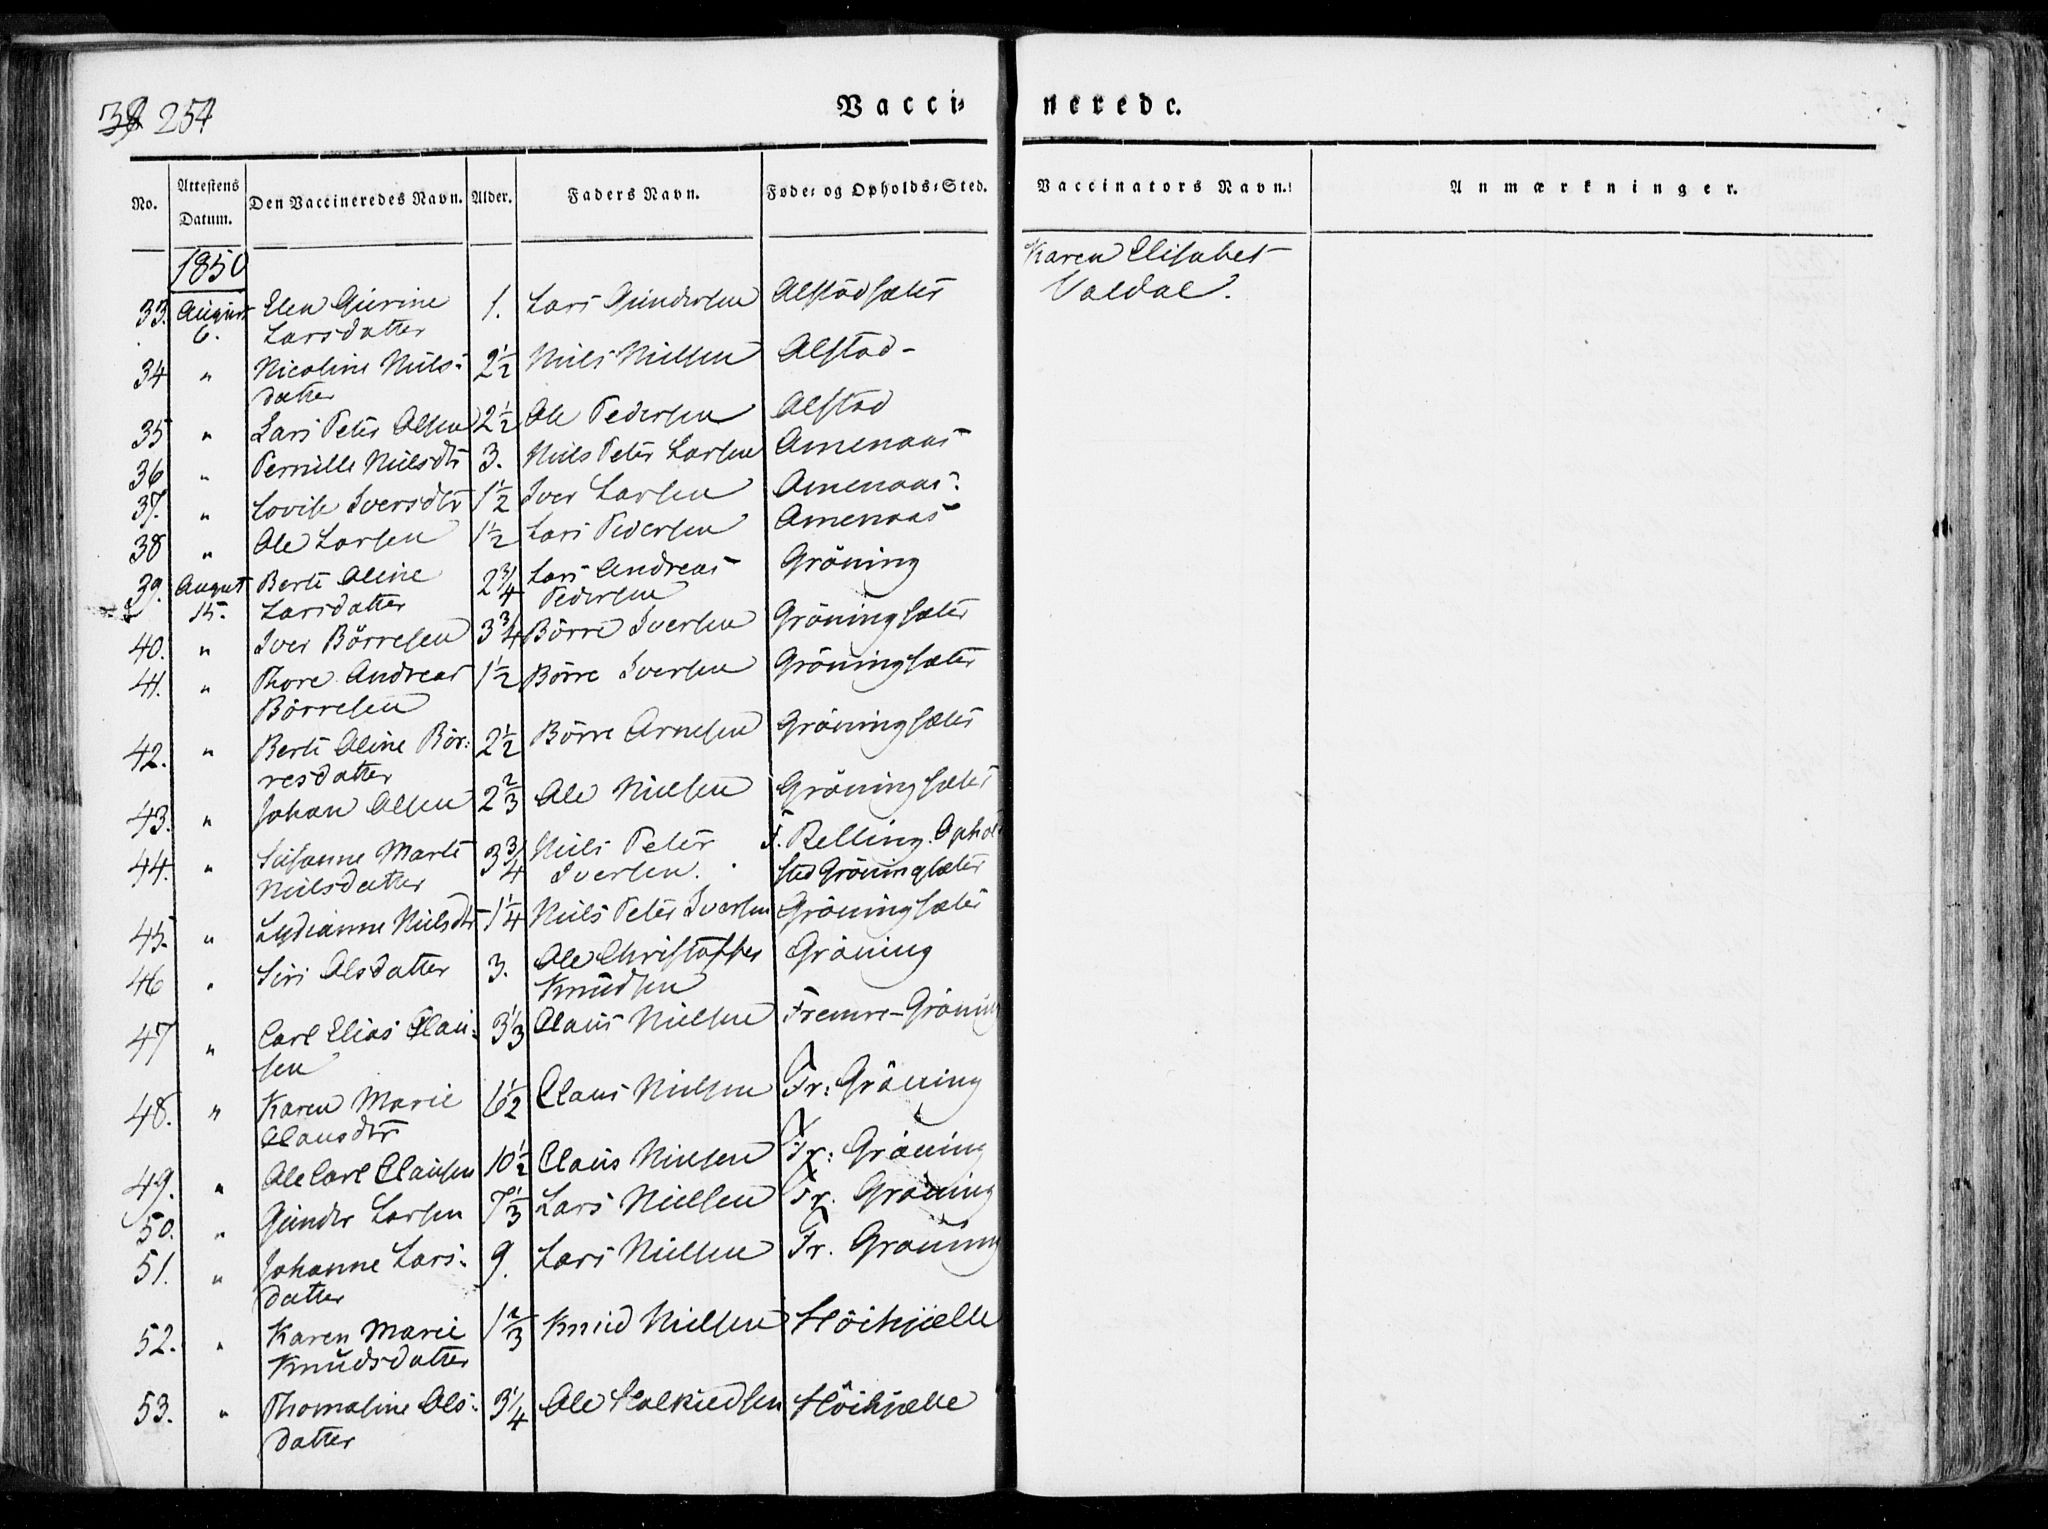 39 254
Vacci= nerede.
No. Attestens Datum. Den Vaccineredes Navn. Alder. Faders Navn. Føde= og Opholds=Sted. Vaccinators Navn. Anmærkninger.
1850
33. August 6. Elen Gurine Larsdatter 1. Lars Gundersen Alstadsæter Karen Elisabet Valdal.
34 " Nicoline Niels= datter 2½ Niels Nielsen Alstad-
35 " Lars Peter Olsen 2½ Ole Pedersen Alstad
36 " Pernille Nielsdtr 3. Niels Peter Larsen Amenaas
37. " Lovise Iversdtr 1½ Iver Larsen Amenaas
38 " Ole Larsen 1½ Lars Pedersen Amenaas
39. August 15. Berte Oline Larsdatter 2¾ Lars Andreas Pedersen Gröning
40. " Iver Börresen 3¾ Börre Iversen Gröningsæter
41. " Thore Andreas Börresen 1½ Börre Iversen Gröningsæter
42. " Berte Oline Bör= resdatter 2½ Börre Arnesen Gröningsæter
43. " Johan Olsen 2⅔ Ole Nielsen Gröningsæter
44. " Susanne Marte Nielsdatter 3¾ Niels Peter Iversen. F. Relling. Ophol sted Gröningsæter
45. " Lydianne Nielsdtr 1¼ Niels Peter Iversen Gröningsæter
46 " Siri Olsdatter 3. Ole Christoffer Knudsen Gröning
47 " Carl Elias Clau= sen 3⅓ Claus Nielsen Fremre-Gröning
48. " Karen Marie Clausdtr 6½ Claus Nielsen Fr: Gröning
49. " Ole Carl Clausen 10½ Claus Nielsen Fr: Gröning
50. " Gunder Larsen 7⅓ Lars Nielsen Fr. Gröning
51. " Johanne Lars= datter 9. Lars Nielsen Fr. Gröning
52. " Karen Marie Knudsdatter 1⅔ Knud Nielsen Höihjelle
53. " Thomasine Ols= datter 3¼ Ole Halkiedsen Höihjelle